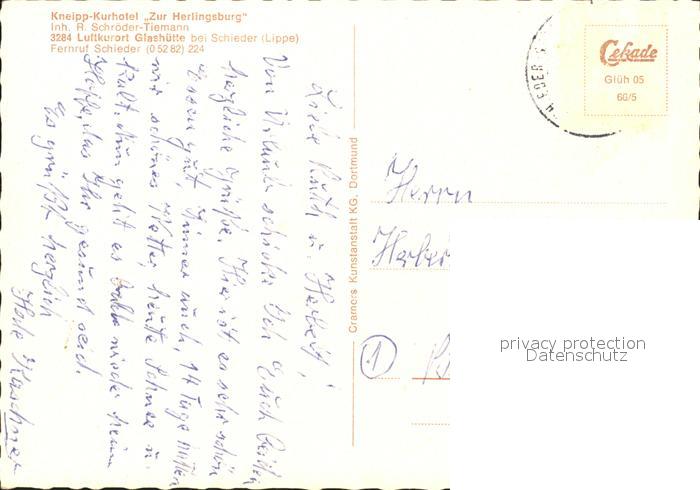 Kneipp-Kurhotel „Zur Herlingsburg"
Inh. R. Schröder-Tiemann
3284 Luftkurort Glashütte bei Schieder (Lippe)
Fernruf Schieder (0 52 82) 224
Liebe Ruth u. Herbert!
Von Urlaub schicke ich Euch beiden
herzliche Grüße. Hier ist es sehr schön
Essen gut, Zimmer auch, 14 Tage hatten
wir schönes Wetter heute Schnee u.
kalt. Nun geht es bald wieder heim
Hoffe, das Ihr gesund seid.
Es grüßt herzlich
Cramers Kunstanstalt KG. Dortmund
Cekade
Glüh 05
60/5
Herrn
1
privacy protection
Datenschutz